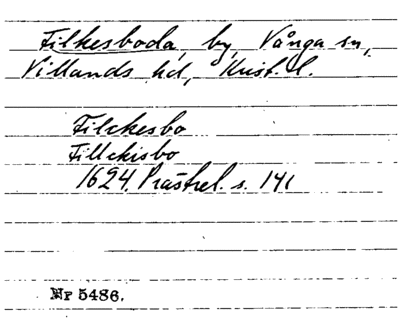 Filkesboda, by, Vånga sn,
Villands hd, Krist. l.
Filckesbo
Fillckisbo
1624. Prästrel. s. 141
Nr 5486.